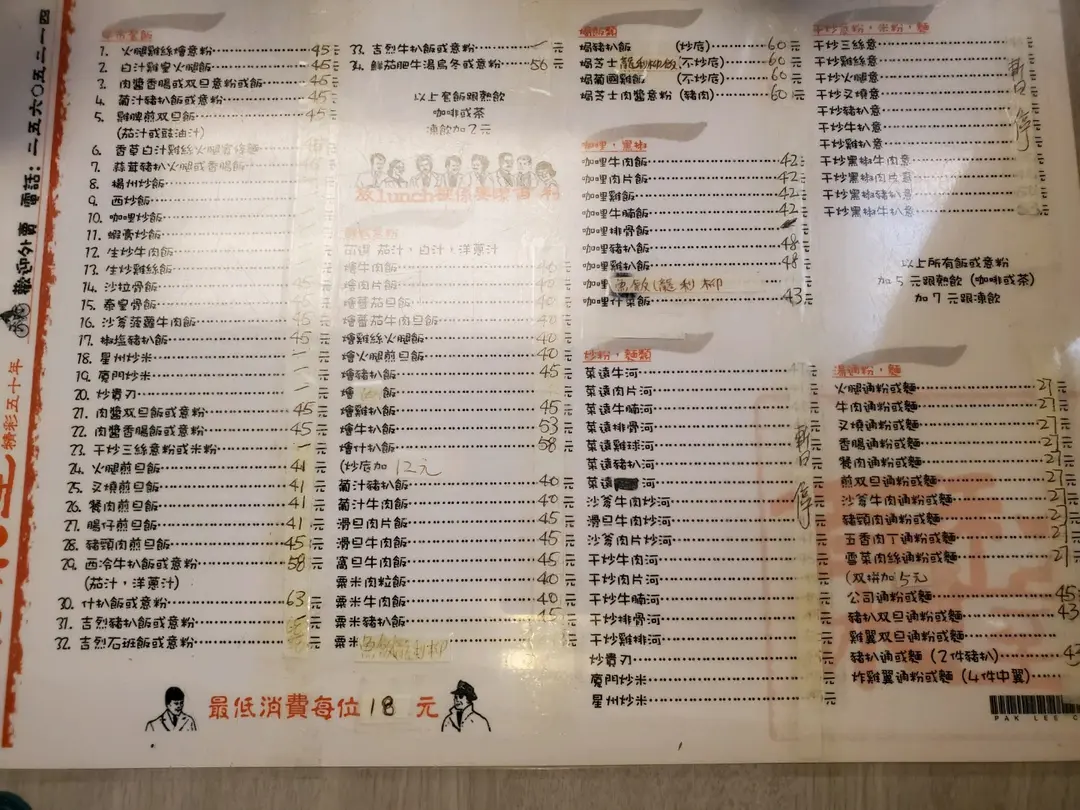 歡迎外賣 電話：二五六〇五二一四
精彩五十年
1. 火腿雞絲燴意粉 45元
2. 白汁雞皇火腿飯 45元
3. 肉醬香腸或双旦意粉或飯 45元
4. 葡汁豬扒飯或意粉 45元
5. 雞脾煎双旦飯 45元
(茄汁或豉油汁)
6. 香草白汁雞絲火腿
7. 蒜茸豬扒火腿或香腸飯
8. 楊州炒飯
9. 西炒飯
10. 咖喱炒飯
11. 蝦醬炒飯
12. 生炒牛肉飯
13. 生炒雞絲飯
14. 沙拉骨飯 45元
15. 泰皇骨飯 45元
16. 沙爹菠蘿牛肉飯 45元
17. 椒塩豬扒飯 45元
18. 星州炒米 一元
19. 廈門炒米 一元
20. 炒貴刀 一元
21. 肉醬双旦飯或意粉 45元
22. 肉醬香腸飯或意粉 45元
23. 干炒三絲意粉或米粉 一元
24. 火腿煎旦飯 41元
25. 叉燒煎旦飯 41元
26. 餐肉煎旦飯 41元
27. 腸仔煎旦飯 41元
28. 豬頭肉煎旦飯 45元
29. 西冷牛扒飯或意粉 58元
(茄汁，洋蔥汁)
30. 什扒飯或意粉 63元
31. 吉烈豬扒飯或意粉 元
32. 吉烈石班飯或意粉 元
33. 吉烈牛扒飯或意粉 一元
34. 鮮茄肥牛湯烏冬或意粉 56元
以上套飯跟熱飲
咖啡或茶
凍飲加2元
lunch
可選 茄汁，白汁，洋蔥汁
燴牛肉飯 40元
燴肉片飯 40元
燴蕃茄旦飯 40元
燴蕃茄牛肉飯 40元
燴雞絲火腿飯 40元
燴火腿煎旦飯 40元
燴豬扒飯 45元
燴 飯 元
燴雞扒飯 45元
燴牛扒飯 53元
燴什扒飯 58元
(炒底加12元
葡汁豬扒飯 40元
葡汁牛肉飯 40元
滑旦肉片飯 45元
滑旦牛肉飯 45元
窩旦牛肉飯 45元
粟米肉粒飯 40元
粟米牛肉飯 40元
粟米豬扒飯 45元
粟米魚飯(龍利柳 元
焗飯類
焗豬扒飯 (炒底) 60元
焗芝士龍利柳飯(不炒底) 60元
焗葡國雞飯 (不炒底) 60元
焗芝士肉醬意粉 (豬肉) 60元
咖喱，黑椒
咖喱牛肉飯 42元
咖喱肉片飯 42元
咖喱雞飯 42元
咖喱牛腩飯 42元
咖喱排骨飯 元
咖喱豬扒飯 48元
咖喱雞扒飯 48元
咖喱魚飯(龍利柳
咖喱什菜飯 43元
炒粉，麵類
菜遠牛河 元
菜遠肉片河 元
菜遠牛腩河 元
菜遠排骨河 元
菜遠雞球河 元
菜遠豬扒河 元
菜遠 河 元
沙爹牛肉炒河 元
滑旦牛肉炒河 元
沙爹肉片炒河 元
干炒牛肉河 元
干炒肉片河 元
干炒牛腩河 元
干炒排骨河 元
干炒雞排河 元
炒貴刀 元
廈門炒米 元
星州炒米 元
暫停
干炒意粉，米粉，麵
干炒三絲意
干炒雞絲意
干炒火腿意
干炒叉燒意
干炒豬扒意
干炒牛扒意
干炒雞扒意
干炒黑椒牛肉意
干炒黑椒肉片意
干炒黑椒豬扒意
干炒黑椒牛扒意
暫停
以上所有飯或意粉
加5元跟熱飲(咖啡或茶)
加7元跟凍飲
湯通粉，麵
火腿通粉或麵 27元
牛肉通粉或麵 27元
叉燒通粉或麵 27元
香腸通粉或麵 27元
餐肉通粉或麵 27元
煎双旦通粉或麵 27元
沙爹牛肉通粉或麵 27元
豬頭肉通粉或麵 27元
五香肉丁通粉或麵 27元
雪菜肉絲通粉或麵 27元
(双拼加5元
公司通粉或麵 45元
豬扒双旦通粉或麵 43
雞翼双旦通粉或麵
豬扒通或麵(2件豬扒) 43
炸雞翼通粉或麵(4件中翼)
最低消費每位18元
PAK LEE C